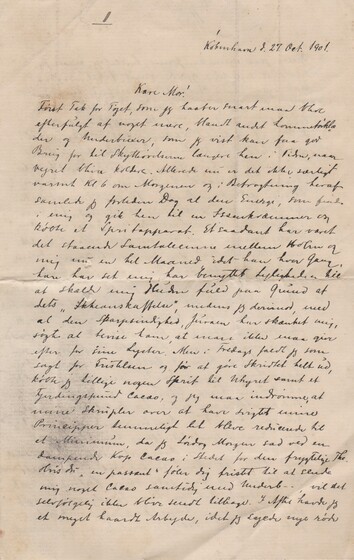 1
København d. 27 Oct. 1901.
Kære Mor!
Først Tak for Tøjet, som jeg haaber snart maa blive
efterfulgt af noget mere, blandt andet Lommetørklæ
der og Underbuxer, som jeg vist kan faa god
Brug for til længere hen i Tiden, naar
vejret bliver koldere. Allerede nu er det ikke særligt
varmt Kl 6 om Morgenen og i Betragtning heraf
samlede jeg forleden Dag al den Energi, som findes
i mig og gik hen til en og
købte et Spritapparat. Et saadant har været
det staaende Samtaleemne mellem Holm og
mig nu en hel Maaned idet han hver Gang,
han har set mig har benyttet Lejligheden til
at skælde mig Huden fuld paa Grund af
dets „ ", medens jeg derimod, med
al den Sparsommelighed, har skænket mig,
søgte at bevise ham, at man ikke maa gaa
efter sine Lyster Men i Fredags faldt jeg som
sagt for Fristelsen og for at gøre Skridtet helt ud,
købte jeg tillige nogen Sprit til Uhyret samt et
Fjerdingspund Cacao. og jeg maa indrømme, at
mine Skrupler over at have svigtet mine
Principper temmeligt let blev reduceret til
et Minimum, da jeg Lørdag Morgen sad ved en
dampende Kop Cacao i Stedet for den frygtelige The
en passant føler Dig fristet til at sende
mig noget Cacao samtidig med Underb... vil det
selvfølgelig ikke blive sendt tilbage. I Aftes havde jeg
et meget haardt Arbejde, idet jeg lavede nye røde